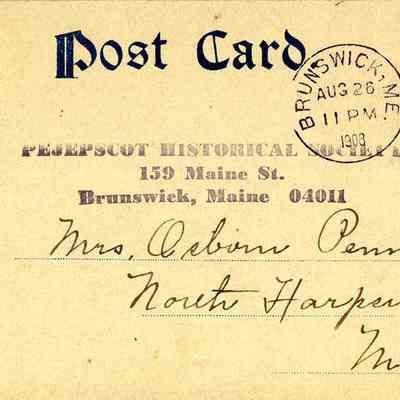 Post Card
BRUNSWICK, ME
AUG 26
11 PM
1908
PEJEPSCOT HISTORICAL SOCIE
159 Maine St.
Brunswick, Maine 04011
Mrs, Osborn Penn
North Harps
M